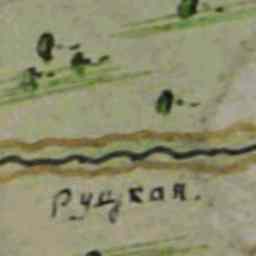 Руцкая.